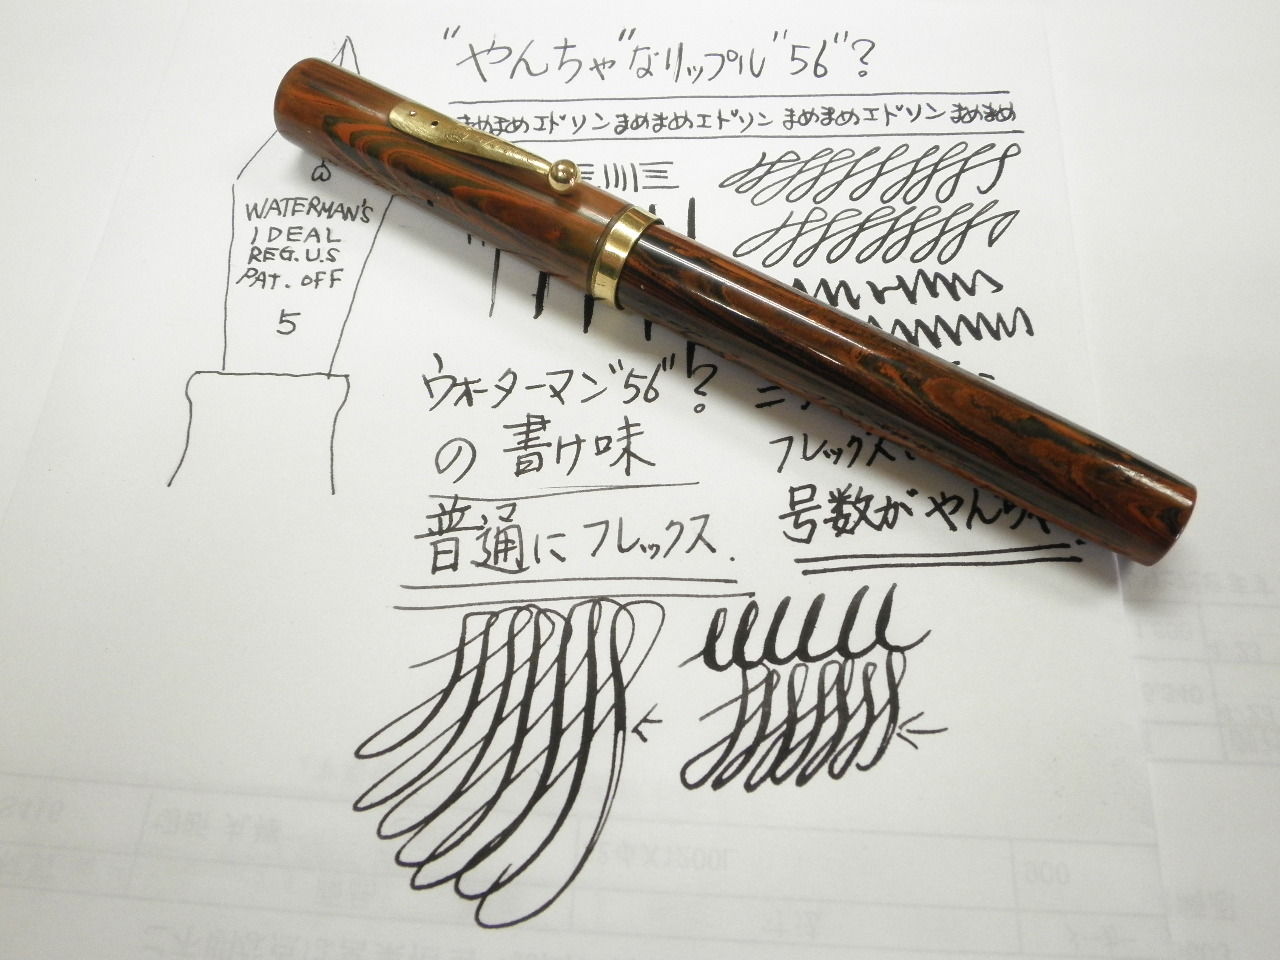 "やんちゃ"なリップル"56"?
まめまめエドソンまめまめエドソン まめまめエドソン まめまめ
WATERMAN'S
IDEAL
REG. U.S
PAT. OFF
5
ウォーターマン"56"?
の書け味
普通にフレックス.
フレックス
号数がやんちゃ